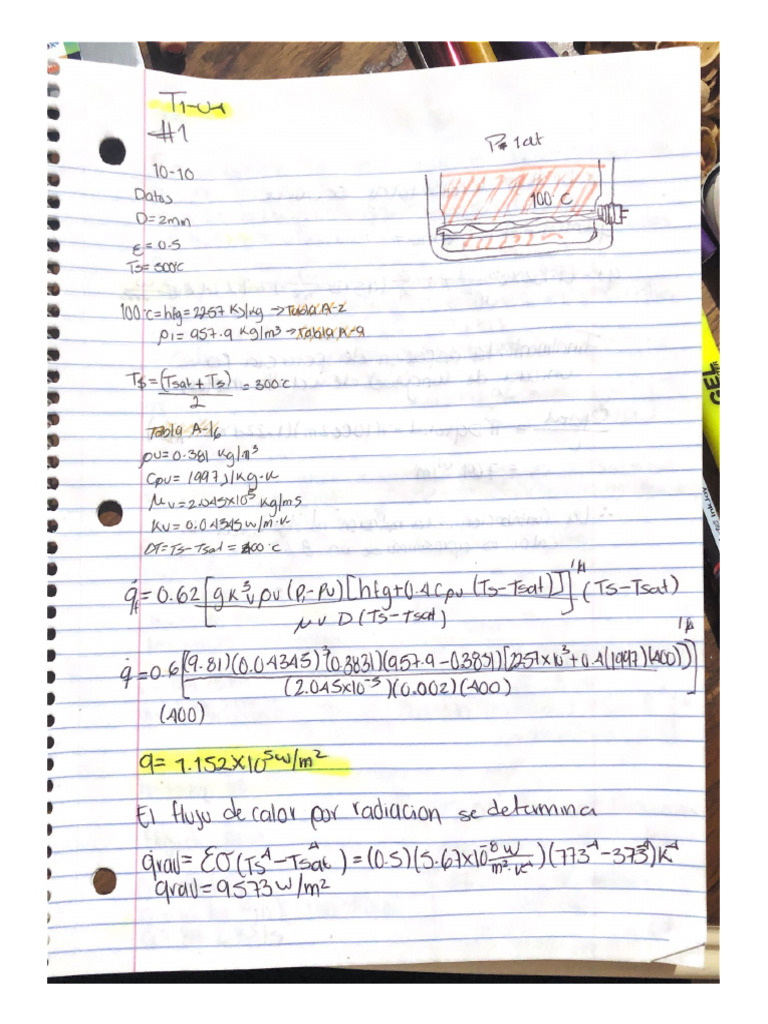 #1
P= 1at
10-10
Datos
D=2mm
100°C
ε=0.5
Ts=500°C
100°C=hfg=2257 KJ/kg →Tabla A-2
ρl=957.9 Kg/m³→Tabla A-9
Ts=(Tsat+Ts)/2 =300°C
Tabla A-16
ρv=0.381 Kg/m³
Cpv= 1997 J/Kg·K
μv=2.045x10⁵ Kg/ms
Kv=0.04345 w/m·K
DT=Ts-Tsat=400°C
q̇=0.62[gK³v ρv(ρl-ρv)[hfg+0.4Cpv(Ts-Tsat)]/μv D(Ts-Tsat)]^1/4 (Ts-Tsat)
q̇=0.6[(9.81)(0.04345)³(0.3831)(957.9-0.3831)[2257x10³+0.4(1997)(400)]/(2.045x10⁻⁵)(0.002)(400)]^1/4
(400)
q=1.152x10⁵w/m²
El flujo de calor por radiacion se determina
q̇rad=εσ(Ts⁴-Tsat⁴)=(0.5)(5.67x10⁻⁸ w/m²·K⁴)(773⁴-373⁴)K⁴
q̇rad=9573w/m²
GEL